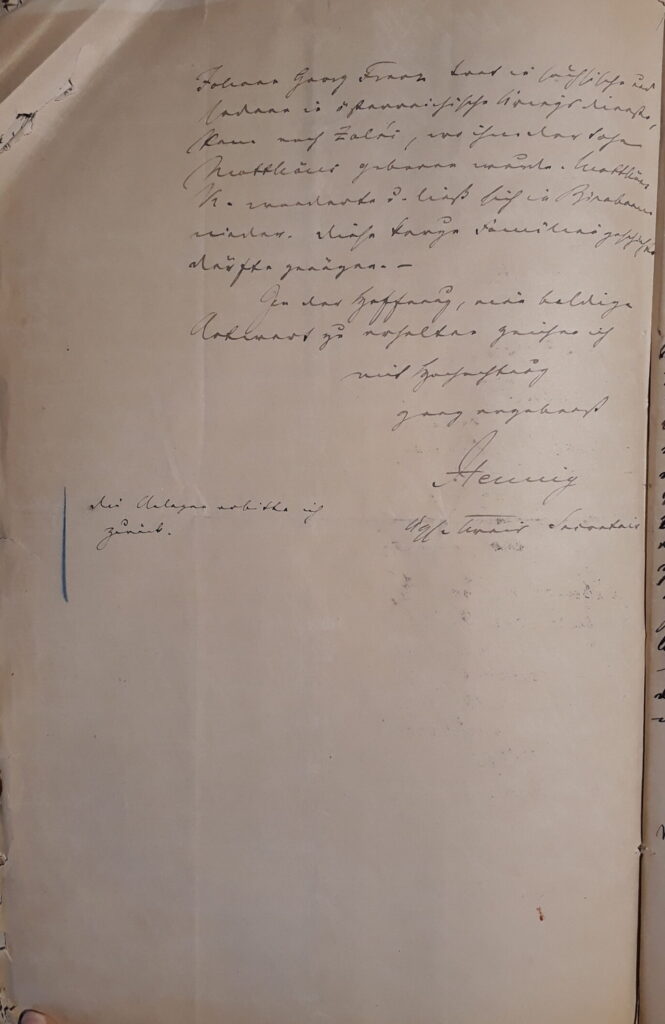 Johann Georg Franz trat in sächsische und
sodann in österreichische Kriegsdienste,
kam nach Zalósc, wo ihm der Sohn
Matthäus geboren wurde. Matthäus
K. wanderte u. ließ sich in Birnbaum
nieder. Diese karge Familiengeschichte
dürfte genügen. —
In der Hoffnung, eine baldige
Antwort zu erhalten zeichne ich
mit Hochachtung
ganz ergebenst
Hennig
Kreis Secretair
die Anlagen erbitte ich
zurück.